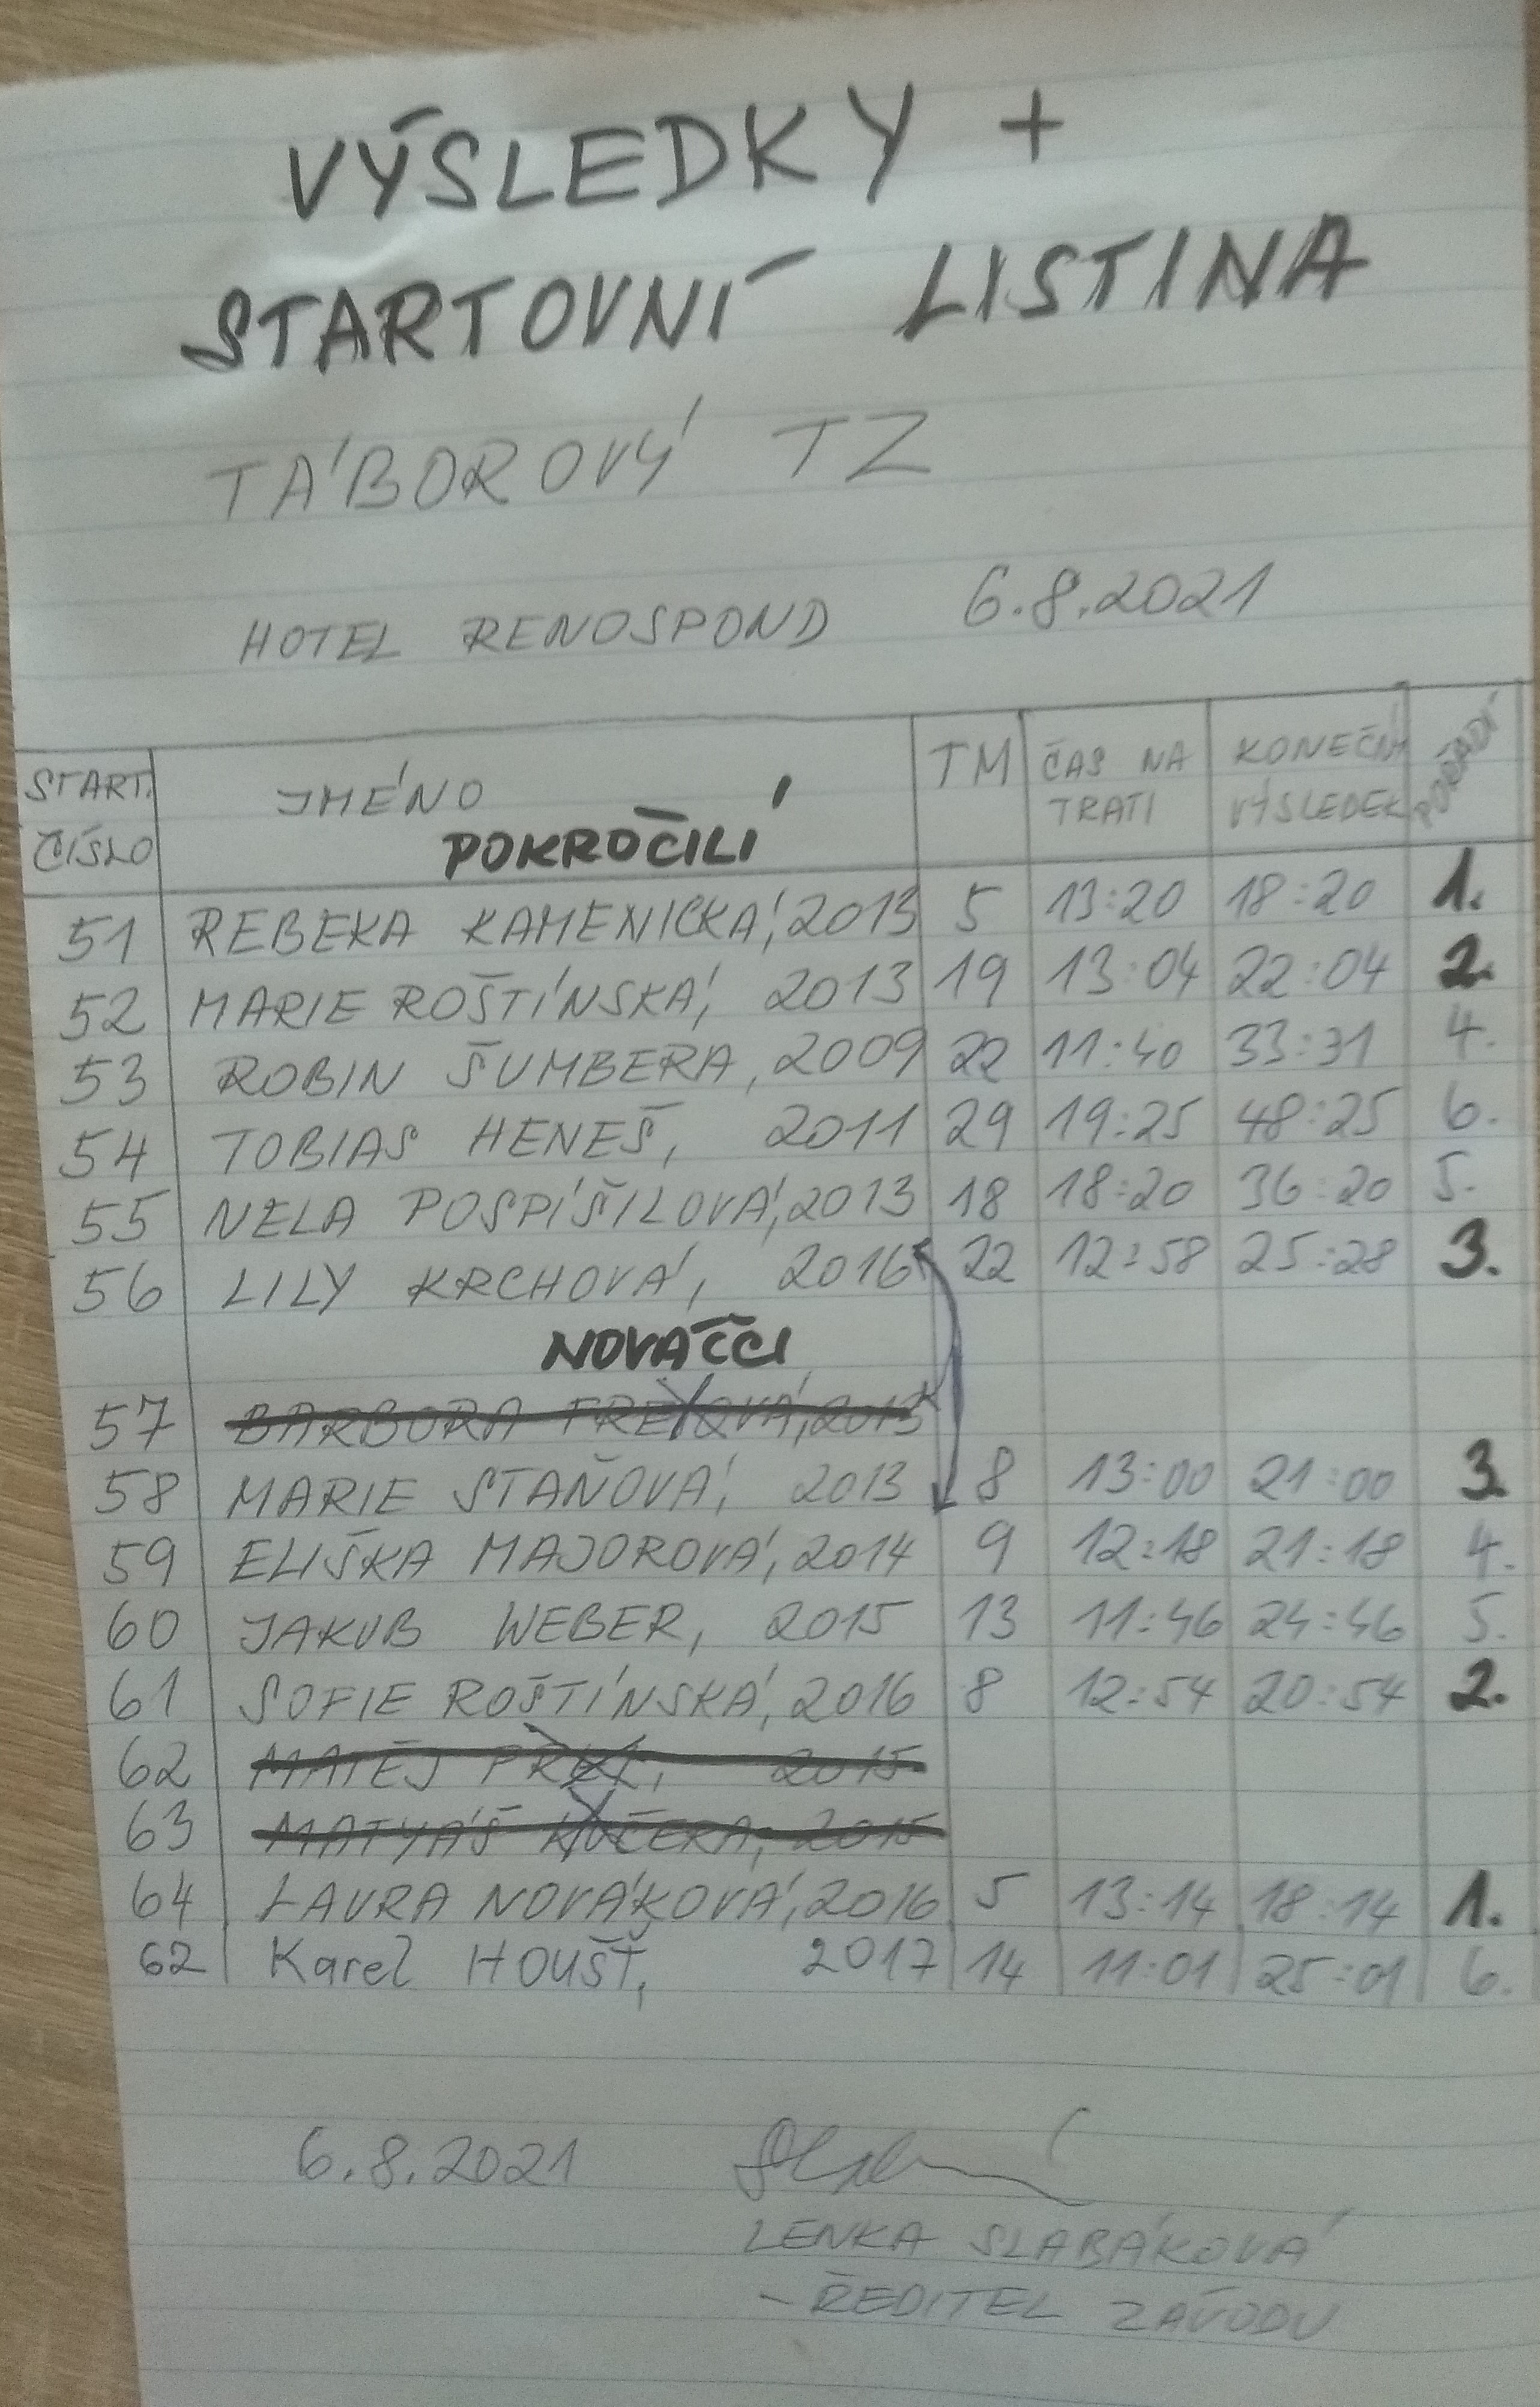 VÝSLEDKY +
STARTOVNÍ LISTINA
TÁBOROVÝ TZ
HOTEL RENOSPOND 6.8.2021
START. ČÍSLO JMÉNO TM ČAS NA TRATI KONEČNÝ VÝSLEDEK POŘADÍ
POKROČILÍ
51 REBEKA KAMENICKÁ, 2013 5 13:20 18:20 1.
52 MARIE ROŠTÍNSKÁ, 2013 19 13:04 22:04 2.
53 ROBIN ŠUMBERA, 2009 22 11:40 33:31 4.
54 TOBIAS HENEŠ, 2011 29 19:25 48:25 6.
55 NELA POSPÍŠILOVÁ, 2013 18 18:20 36:20 5.
56 LILY KRCHOVÁ, 2016 22 12:58 25:28 3.
NOVÁČCI
57 BARBORA FREYOVÁ, 2013
58 MARIE STAŇOVÁ, 2013 8 13:00 21:00 3.
59 ELIŠKA MAJOROVÁ, 2014 9 12:18 21:18 4.
60 JAKUB WEBER, 2015 13 11:46 24:46 5.
61 SOFIE ROŠTÍNSKÁ, 2016 8 12:54 20:54 2.
62 MATĚJ 2015
63 MATYÁŠ KUČERA, 2015
64 LAURA NOVÁKOVÁ, 2016 5 13:14 18:14 1.
62 Karel HOUŠŤ, 2017 14 11:01 25:01 6.
6.8.2021
LENKA SLABÁKOVÁ
- ŘEDITEL ZÁVODU